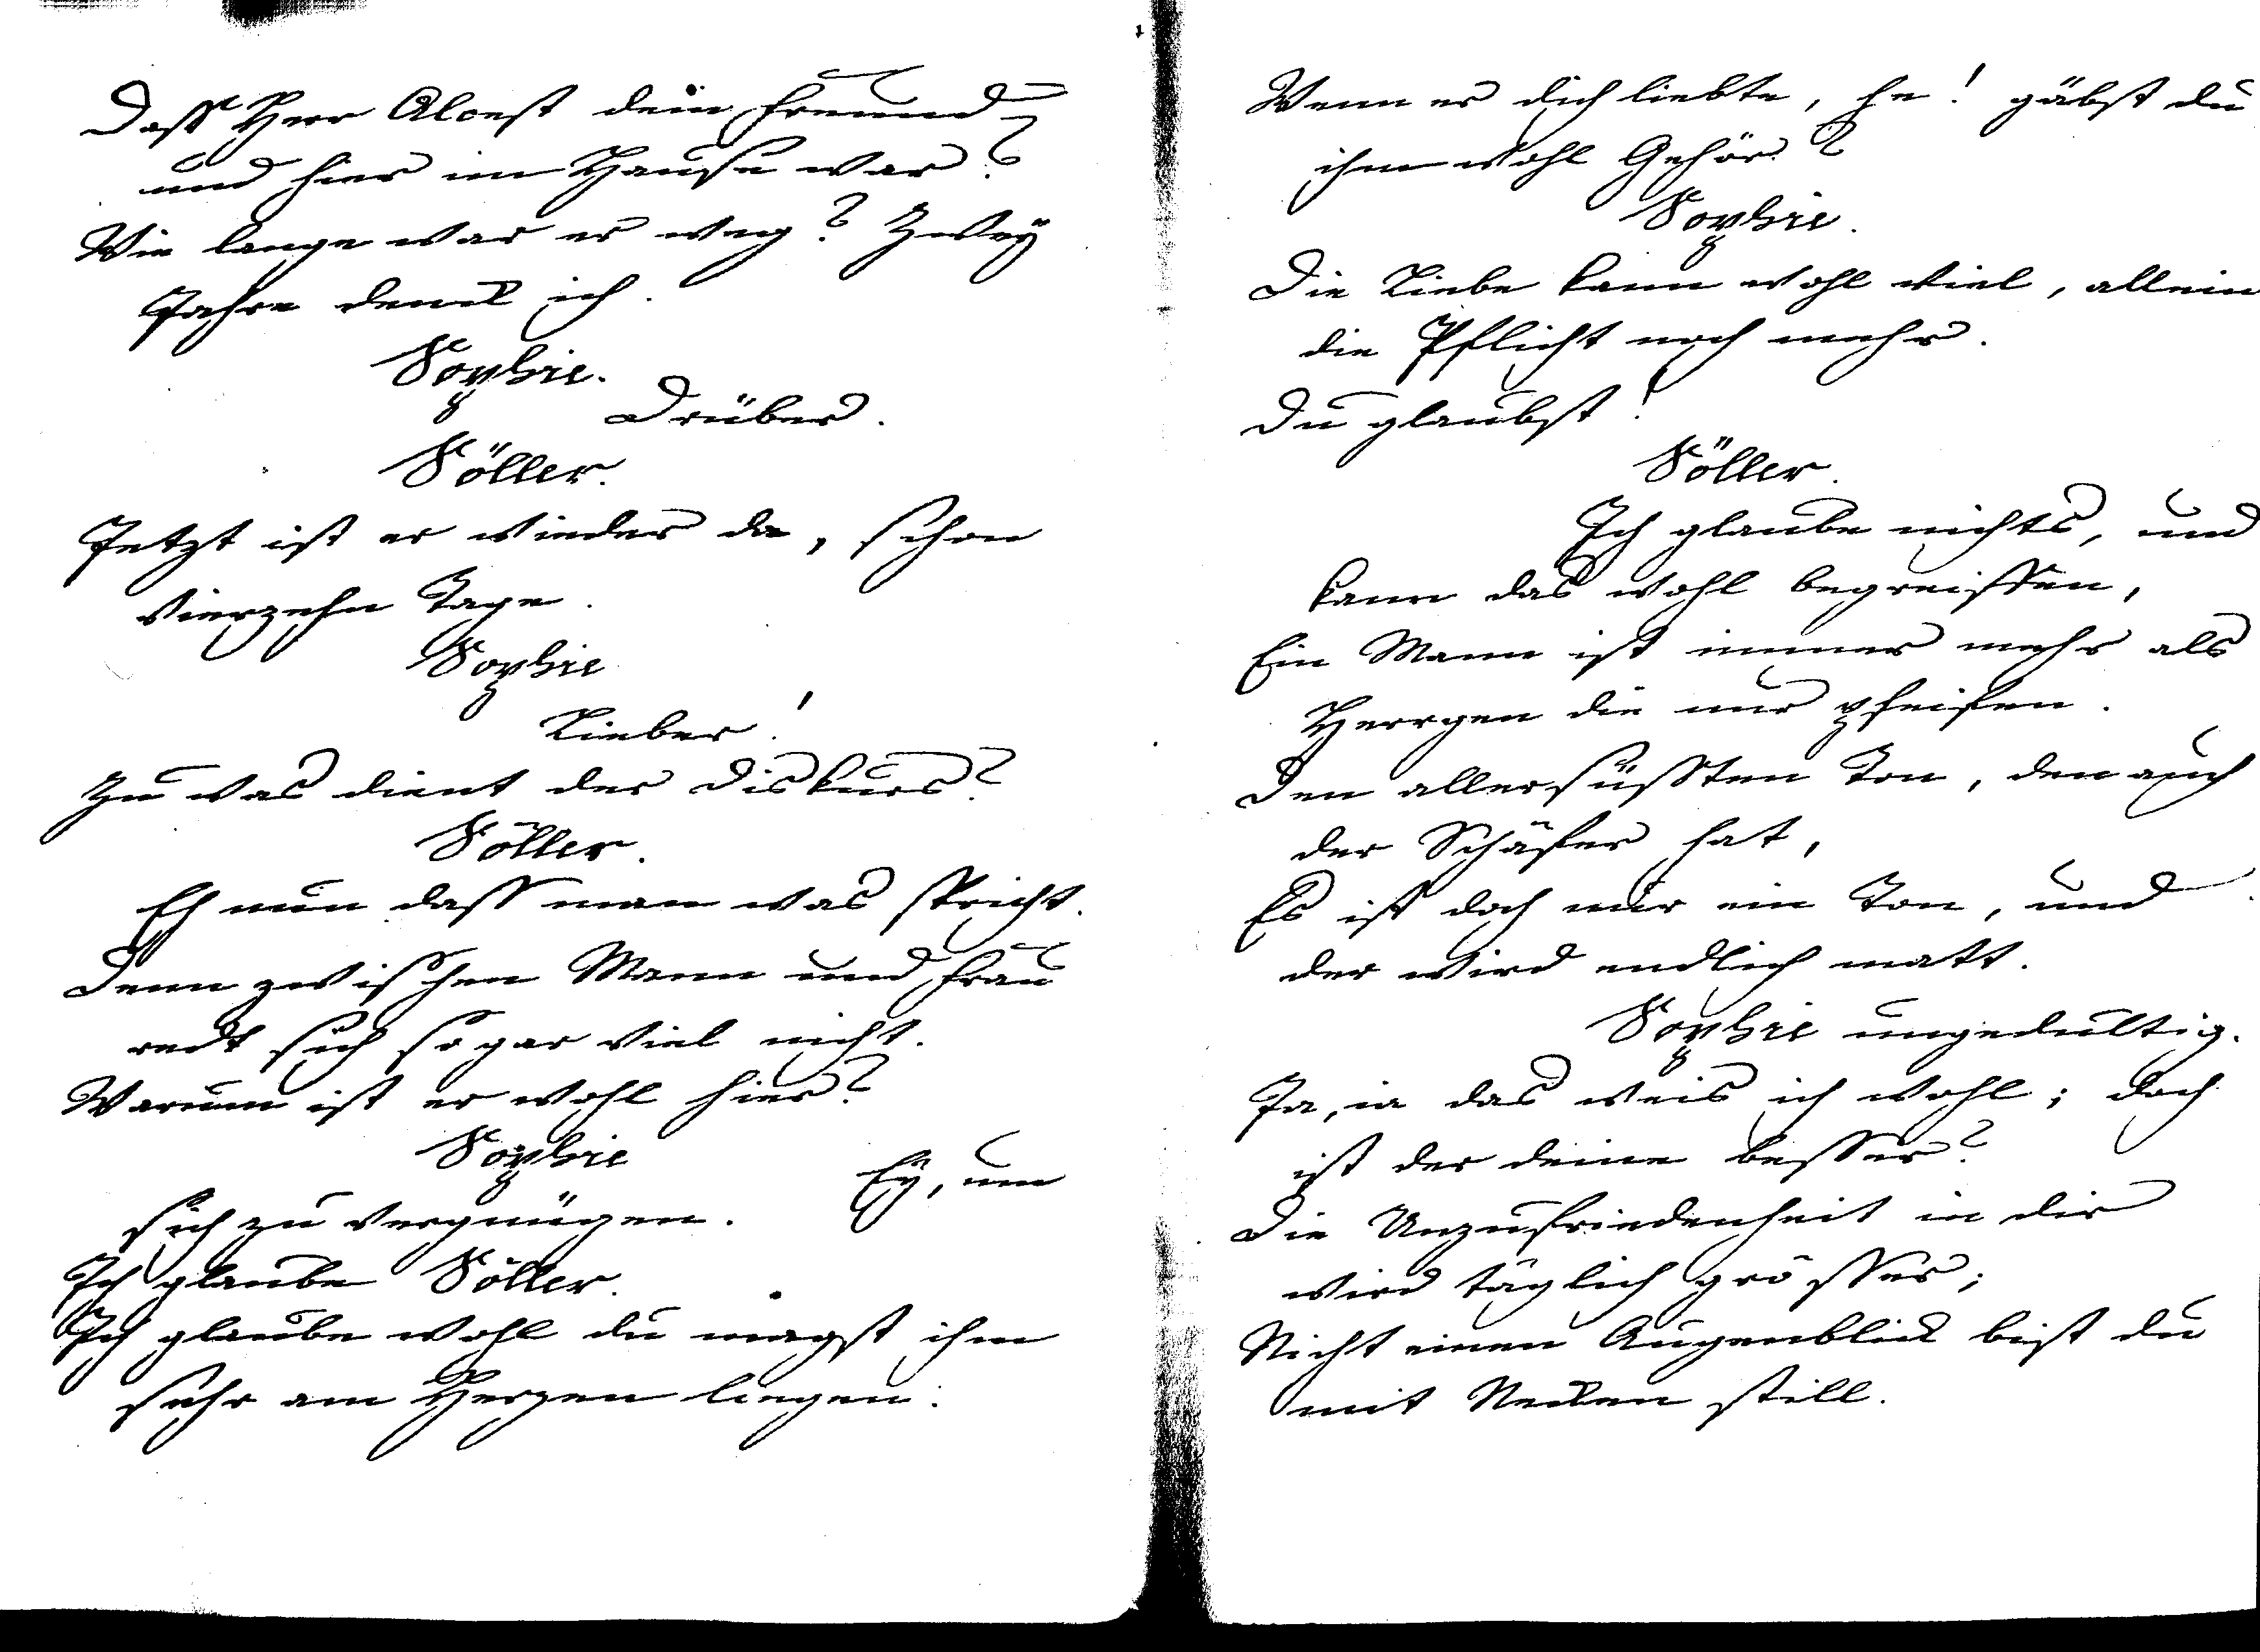 Dass Herr Alcest dein Freund
und hier im Hause war?
Wie lange war er weg? Zwey
Jahre denck ich.
Sophie.
Drüber.
Söller.
Jetzt ist er wieder da, schon
vierzehn Tage.
Sophie
Lieber!
Zu was dient der Diskurs?
Söller.
Eh nun dass man was spricht.
Denn zwischen Mann und Frau
redt sich so gar viel nicht.
Warum ist er wohl hier?
Sophie
Ey, um
sich zu vergnügen.
Ich glaube Söller.
Ich glaube wohl du magst ihm
sehr am Herzen liegen.
Wenn er dich liebte, he! gäbst du
ihm wohl Gehör?
Sophie.
Die Liebe kann wohl viel, allein
die Pflicht noch mehr.
Du glaubst!
Söller.
Ich glaube nichts, und
kann das wohl begreiffen,
Ein Mann ist immer mehr als
Herrgen die nur pfeifen.
Den allersüssten Ton, den auch
der Schäfer hat,
Es ist doch nur ein Ton, und
der wird endlich matt.
Sophie ungedultig.
Ja, ia das weis ich wohl; doch
ist der deine besser?
Die Unzufriedenheit in dir
wird täglich grösser;
Nicht einen Augenblick bist du
mit Necken still.